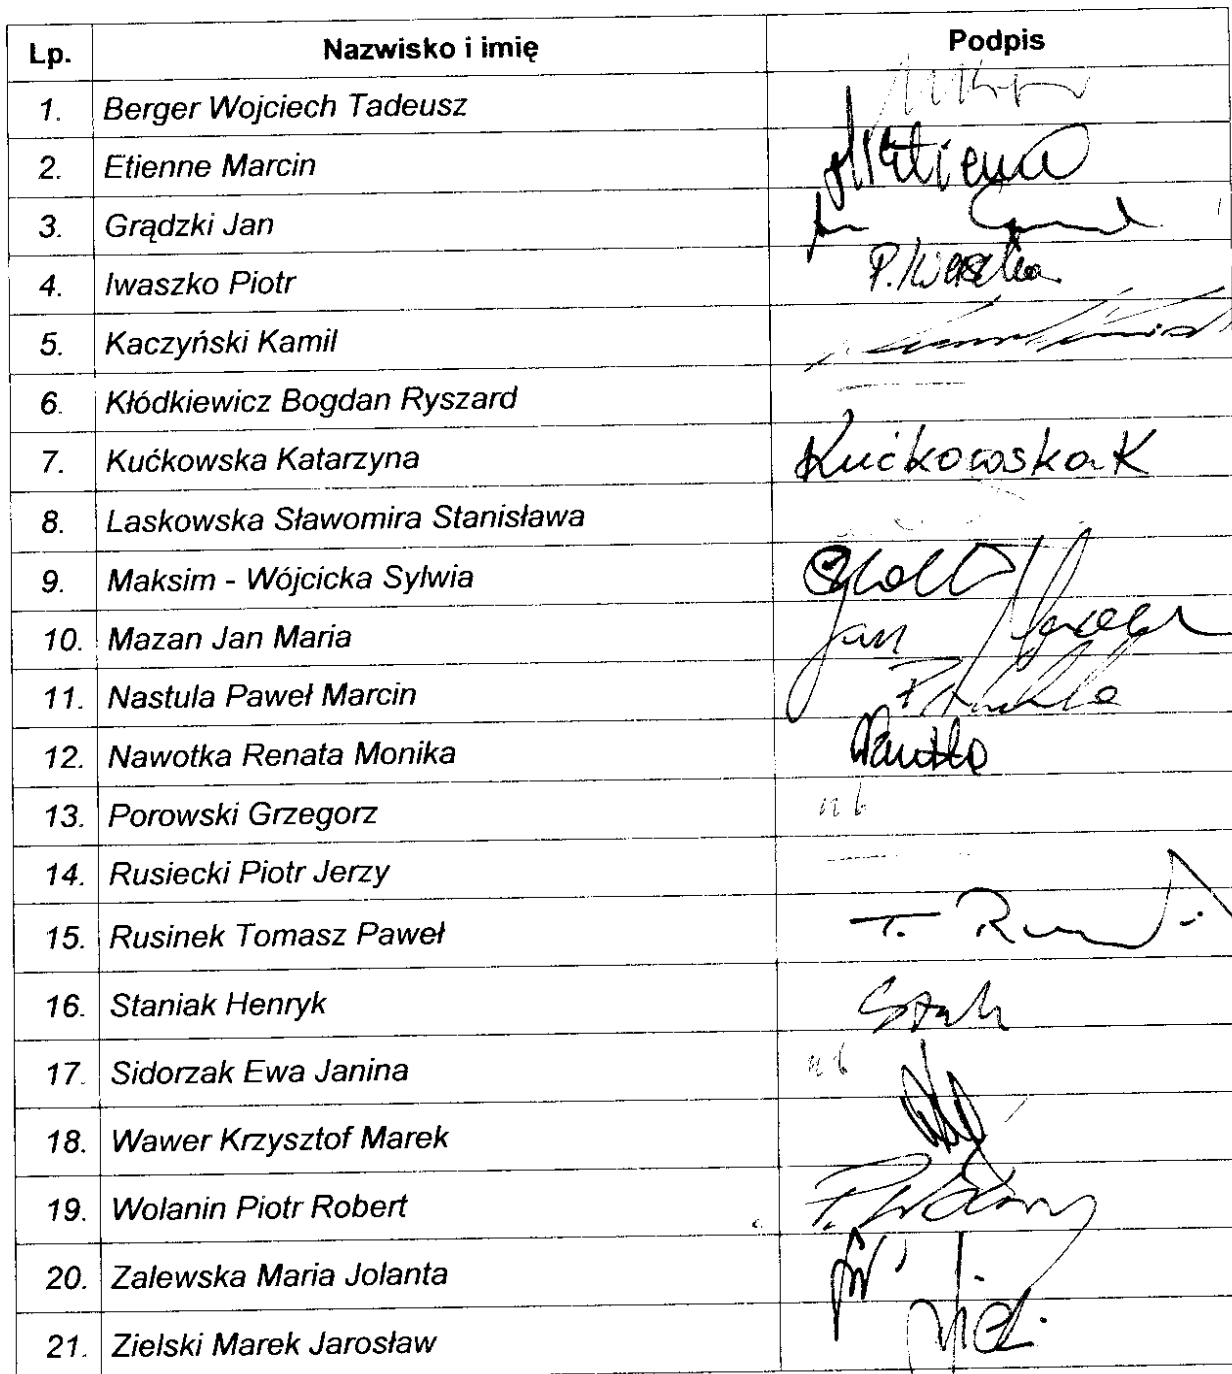 Lp. Nazwisko i imię Podpis
1. Berger Wojciech Tadeusz
2. Etienne Marcin
3. Grądzki Jan
4. Iwaszko Piotr P. Iwaszko
5. Kaczyński Kamil
6. Kłódkiewicz Bogdan Ryszard
7. Kućkowska Katarzyna Kućkowska K
8. Laskowska Sławomira Stanisława
9. Maksim - Wójcicka Sylwia
10. Mazan Jan Maria Jan Mazan
11. Nastula Paweł Marcin
12. Nawotka Renata Monika
13. Porowski Grzegorz nb
14. Rusiecki Piotr Jerzy
15. Rusinek Tomasz Paweł
16. Staniak Henryk
17. Sidorzak Ewa Janina nb
18. Wawer Krzysztof Marek
19. Wolanin Piotr Robert
20. Zalewska Maria Jolanta
21. Zielski Marek Jarosław